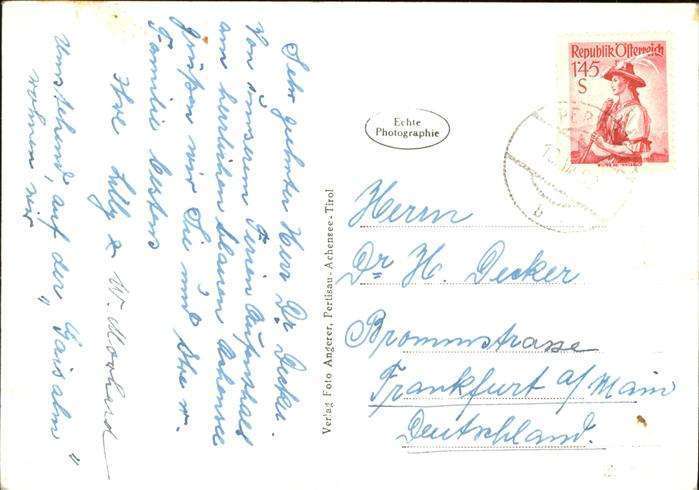 Sehr geehrter Herr Dr. Decker.
Von unserem Ferien Aufenthalt
am herrlichen blauen Achensee
grüßen wir Sie und Ihre w.
Familie bestens
Ihre Lilly & W.
Umstehend, auf der „Gaisalm“
wohnen wir
Verlag Foto Angerer, Pertisau-Achensee-Tirol
Echte
Photographie
Republik Österreich
1'45
S
PER
b
Herrn
Dr. H. Decker
Brommstrasse
Frankfurt a/Main
Deutschland.